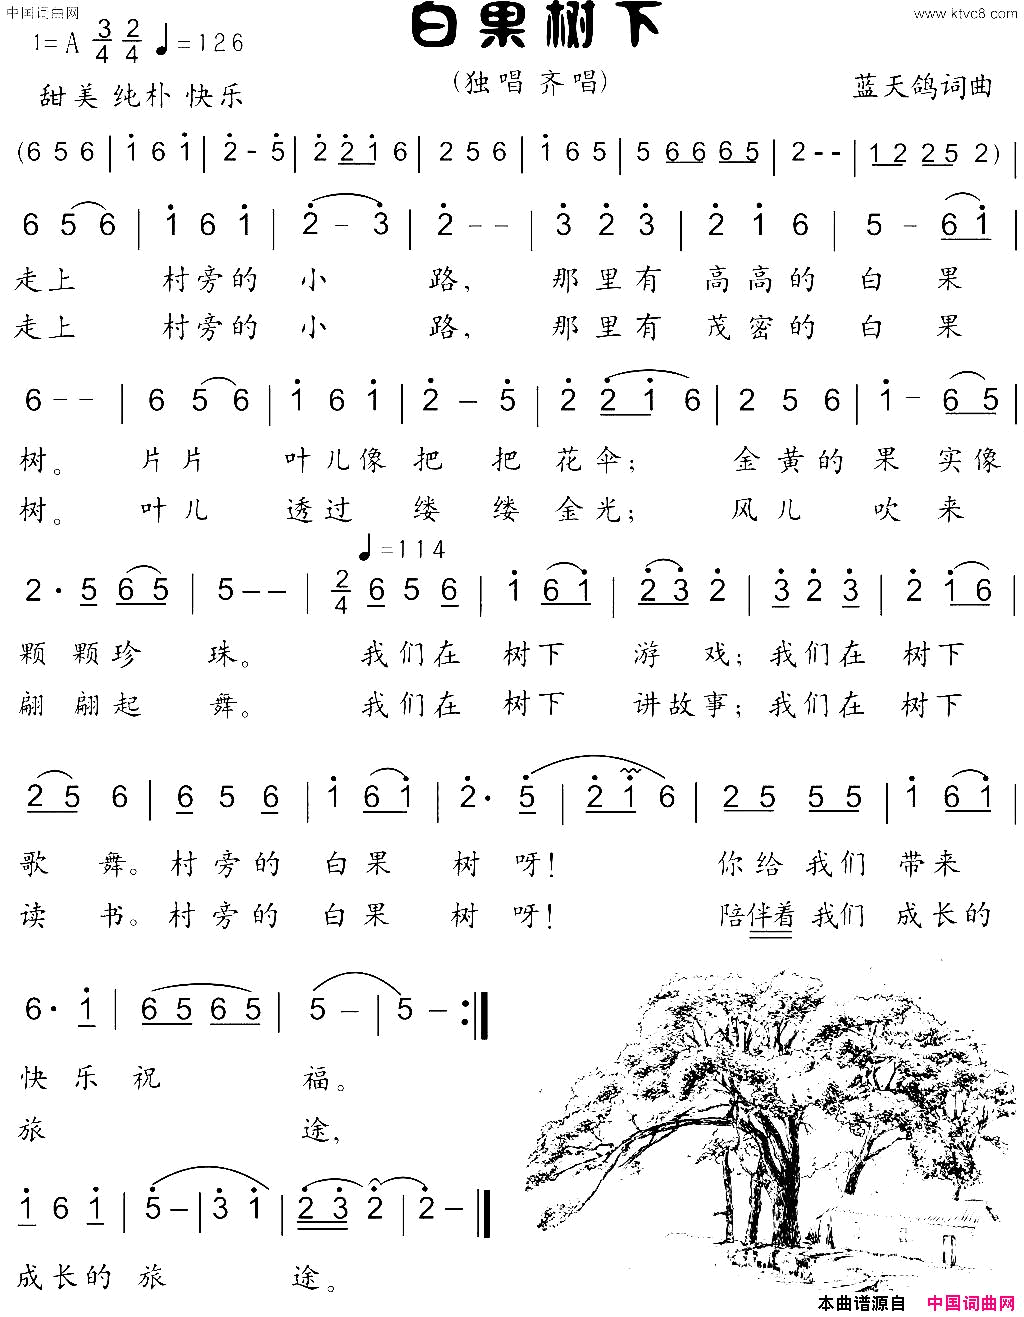 中国词曲网 www.ktvc8.com
白果树下
1=A 3/4 2/4 ♩=126
(独唱 齐唱)
甜美 纯朴 快乐 蓝天鸽词曲
(6 5 6 | i 6 i | 2 - 5 | 2 2 i 6 | 2 5 6 | i 6 5 | 5 6 6 6 5 | 2 - - | 1 2 2 5 2) |
6 5 6 | i 6 i | 2 - 3 | 2 - - | 3 2 3 | 2 i 6 | 5 - 6 i |
走上 村旁的 小 路, 那里有 高高的 白 果
走上 村旁的 小 路, 那里有 茂密的 白 果
6 - - | 6 5 6 | i 6 i | 2 - 5 | 2 2 i 6 | 2 5 6 | i - 6 5 |
树。 片片 叶儿像 把 把 花伞; 金黄的 果 实像
树。 叶儿 透过 缕 缕 金光; 风儿 吹 来
♩=114
2 · 5 6 5 | 5 - - | 2/4 6 5 6 | i 6 i | 2 3 2 | 3 2 3 | 2 i 6 |
颗 颗珍 珠。 我们在 树下 游 戏; 我们在 树下
翩 翩起 舞。 我们在 树下 讲故事; 我们在 树下
2 5 6 | 6 5 6 | i 6 i | 2 · 5 | 2 i 6 | 2 5 5 5 | i 6 i |
歌 舞。 村旁的 白果 树 呀! 你给 我们 带来
读 书。 村旁的 白果 树 呀! 陪伴着 我们 成长的
6 · i | 6 5 6 5 | 5 - | 5 - :‖
快乐祝 福。
旅 途,
i 6 i | 5 - | 3 i | 2 3 2 | 2 - ‖
成长的 旅 途。
本曲谱源自 中国词曲网